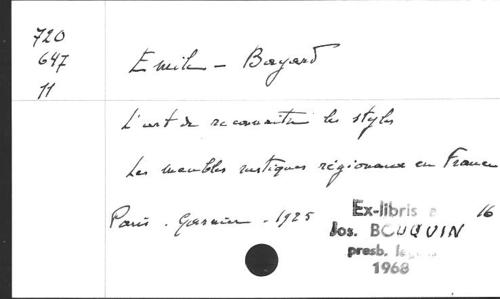 720
647
11
Emile - Bayard
L'art de reconnaitre les styles
Les meubles rustiques régionaux en France
Paris. Garnier. - 1925
16
Ex-libris
Jos. BOUQUIN
presb.
1968